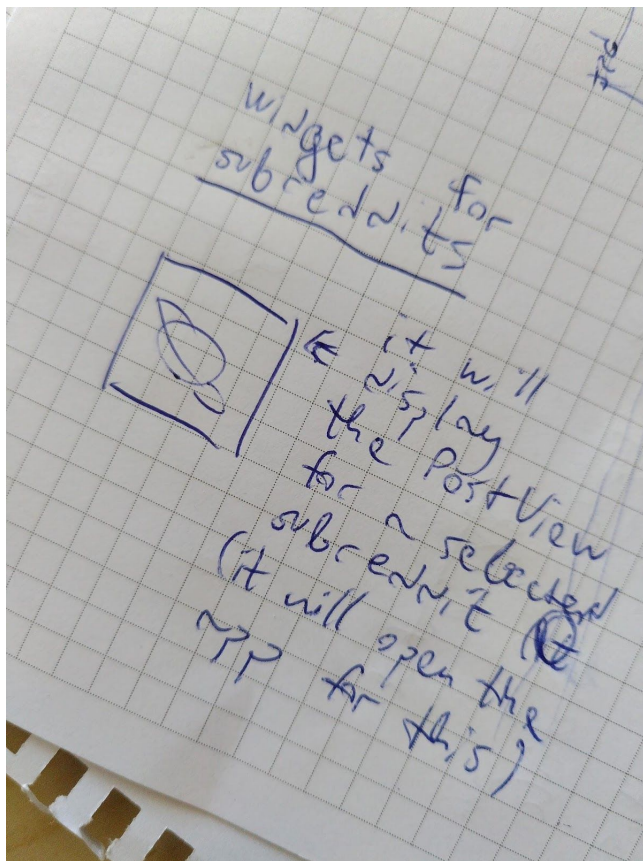 widgets for
subreddits
← it will
display
the PostView
for a selected
subreddit (
(it will open the
app for this)